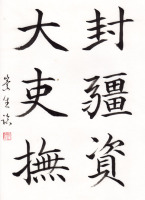 封疆資
大吏撫